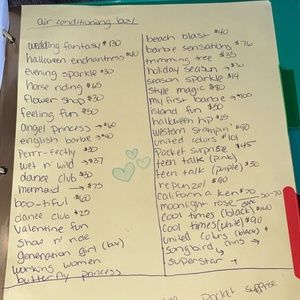 air conditioning box!
wedding fantasy $130
halloween enchantress $40
evening sparkle $30
horse riding $65
flower shop $30
feeling fun $50
angel princess → $60
english barbie $40
perr-fectly $30
wet n' wild → $37
dance club $30
mermaid → $75
boo-tiful $60
dance club $25
valentine fun
show n' ride
generation girl (box)
working women
butterfly princess
beach blast $40
barbie sensations $76
trimming tree $35
holiday season $30
season sparkle $19
style magic $80
my first barbie → $100
island fun $50
halloween hip $25
western stampin' $90
united colors $101
pocket surprise $45
teen talk (pink)
teen talk (purple) $50
repunzel $90
california ken $70
moonlight rose
cool times (black) $160
cool times (white) $90
united colors (black)
songbird
superstar →
pocket surprise